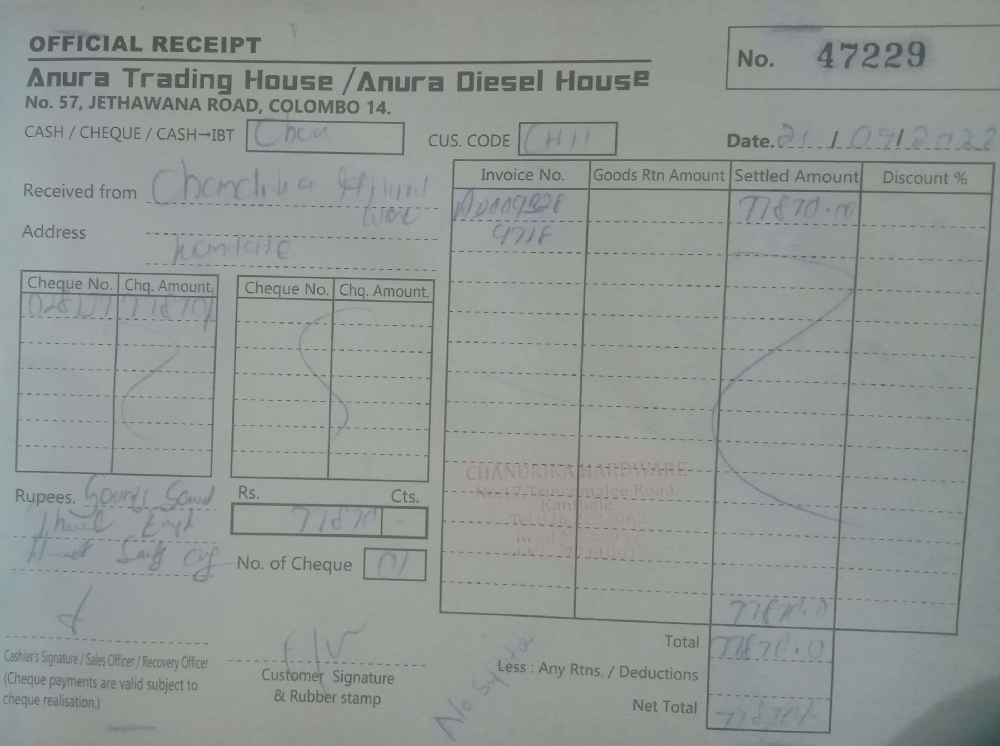 OFFICIAL RECEIPT
No. 47229
Anura Trading House / Anura Diesel House
No. 57, JETHAWANA ROAD, COLOMBO 14.
CASH / CHEQUE / CASH→IBT
CUS. CODE CH11
Date. 21 / 09 / 2022
Received from
Address
Invoice No. Goods Rtn Amount Settled Amount Discount %
77870.00
9718
Cheque No. Chq. Amount. Cheque No. Chq. Amount.
77870/-
CHANDRIKA HARDWARE
No.17, Trincomalee Road,
Kantale
Rupees.
Rs. Cts.
77870 -
No. of Cheque 01
77870.0
Total 77870.0
Less : Any Rtns. / Deductions
Net Total 77870/-
Cashier's Signature / Sales Officer / Recovery Officer
(Cheque payments are valid subject to
cheque realisation.)
Customer Signature
& Rubber stamp